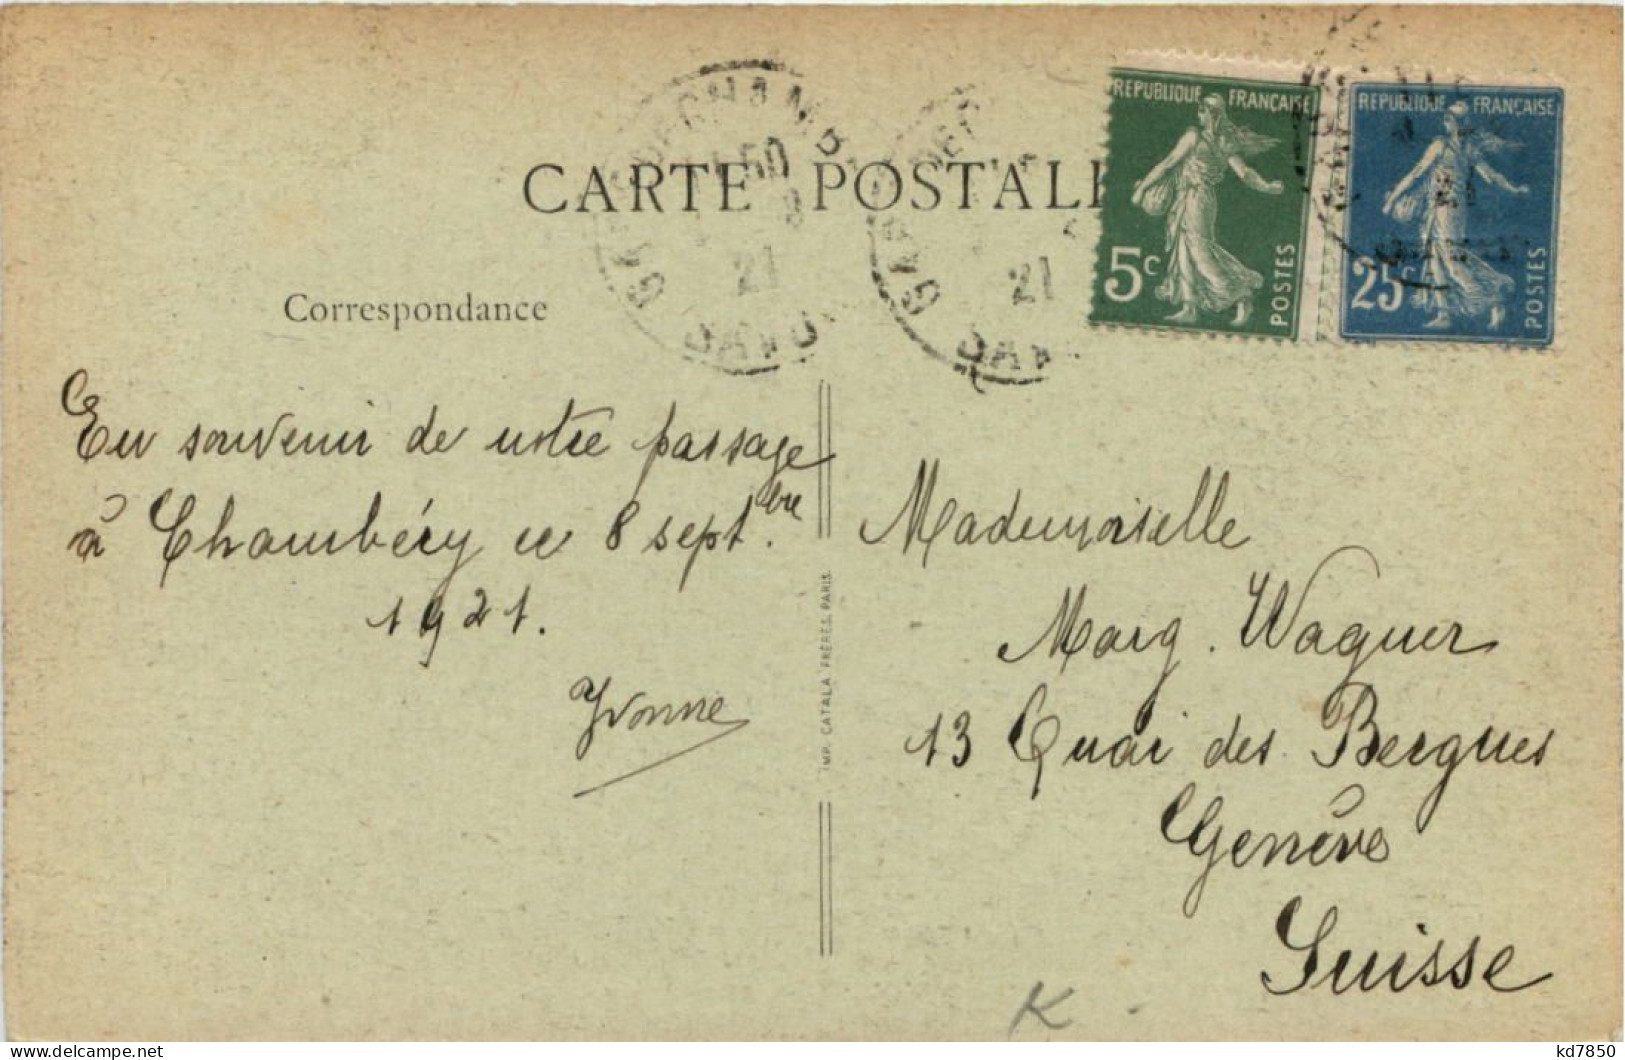 CARTE POSTAL
REPUBLIQUE FRANÇAISE
5c
POSTES
REPUBLIQUE FRANÇAISE
25c
POSTES
21
21
Correspondance
En souvenir de notre passage
à Chambéry ce 8 septbre.
1921.
Yvonne
IMP. CATALA FRÈRES, PARIS.
Mademoiselle
Marg. Wagner
13 Quai des Bergues
Genève
Suisse
K
kd7850